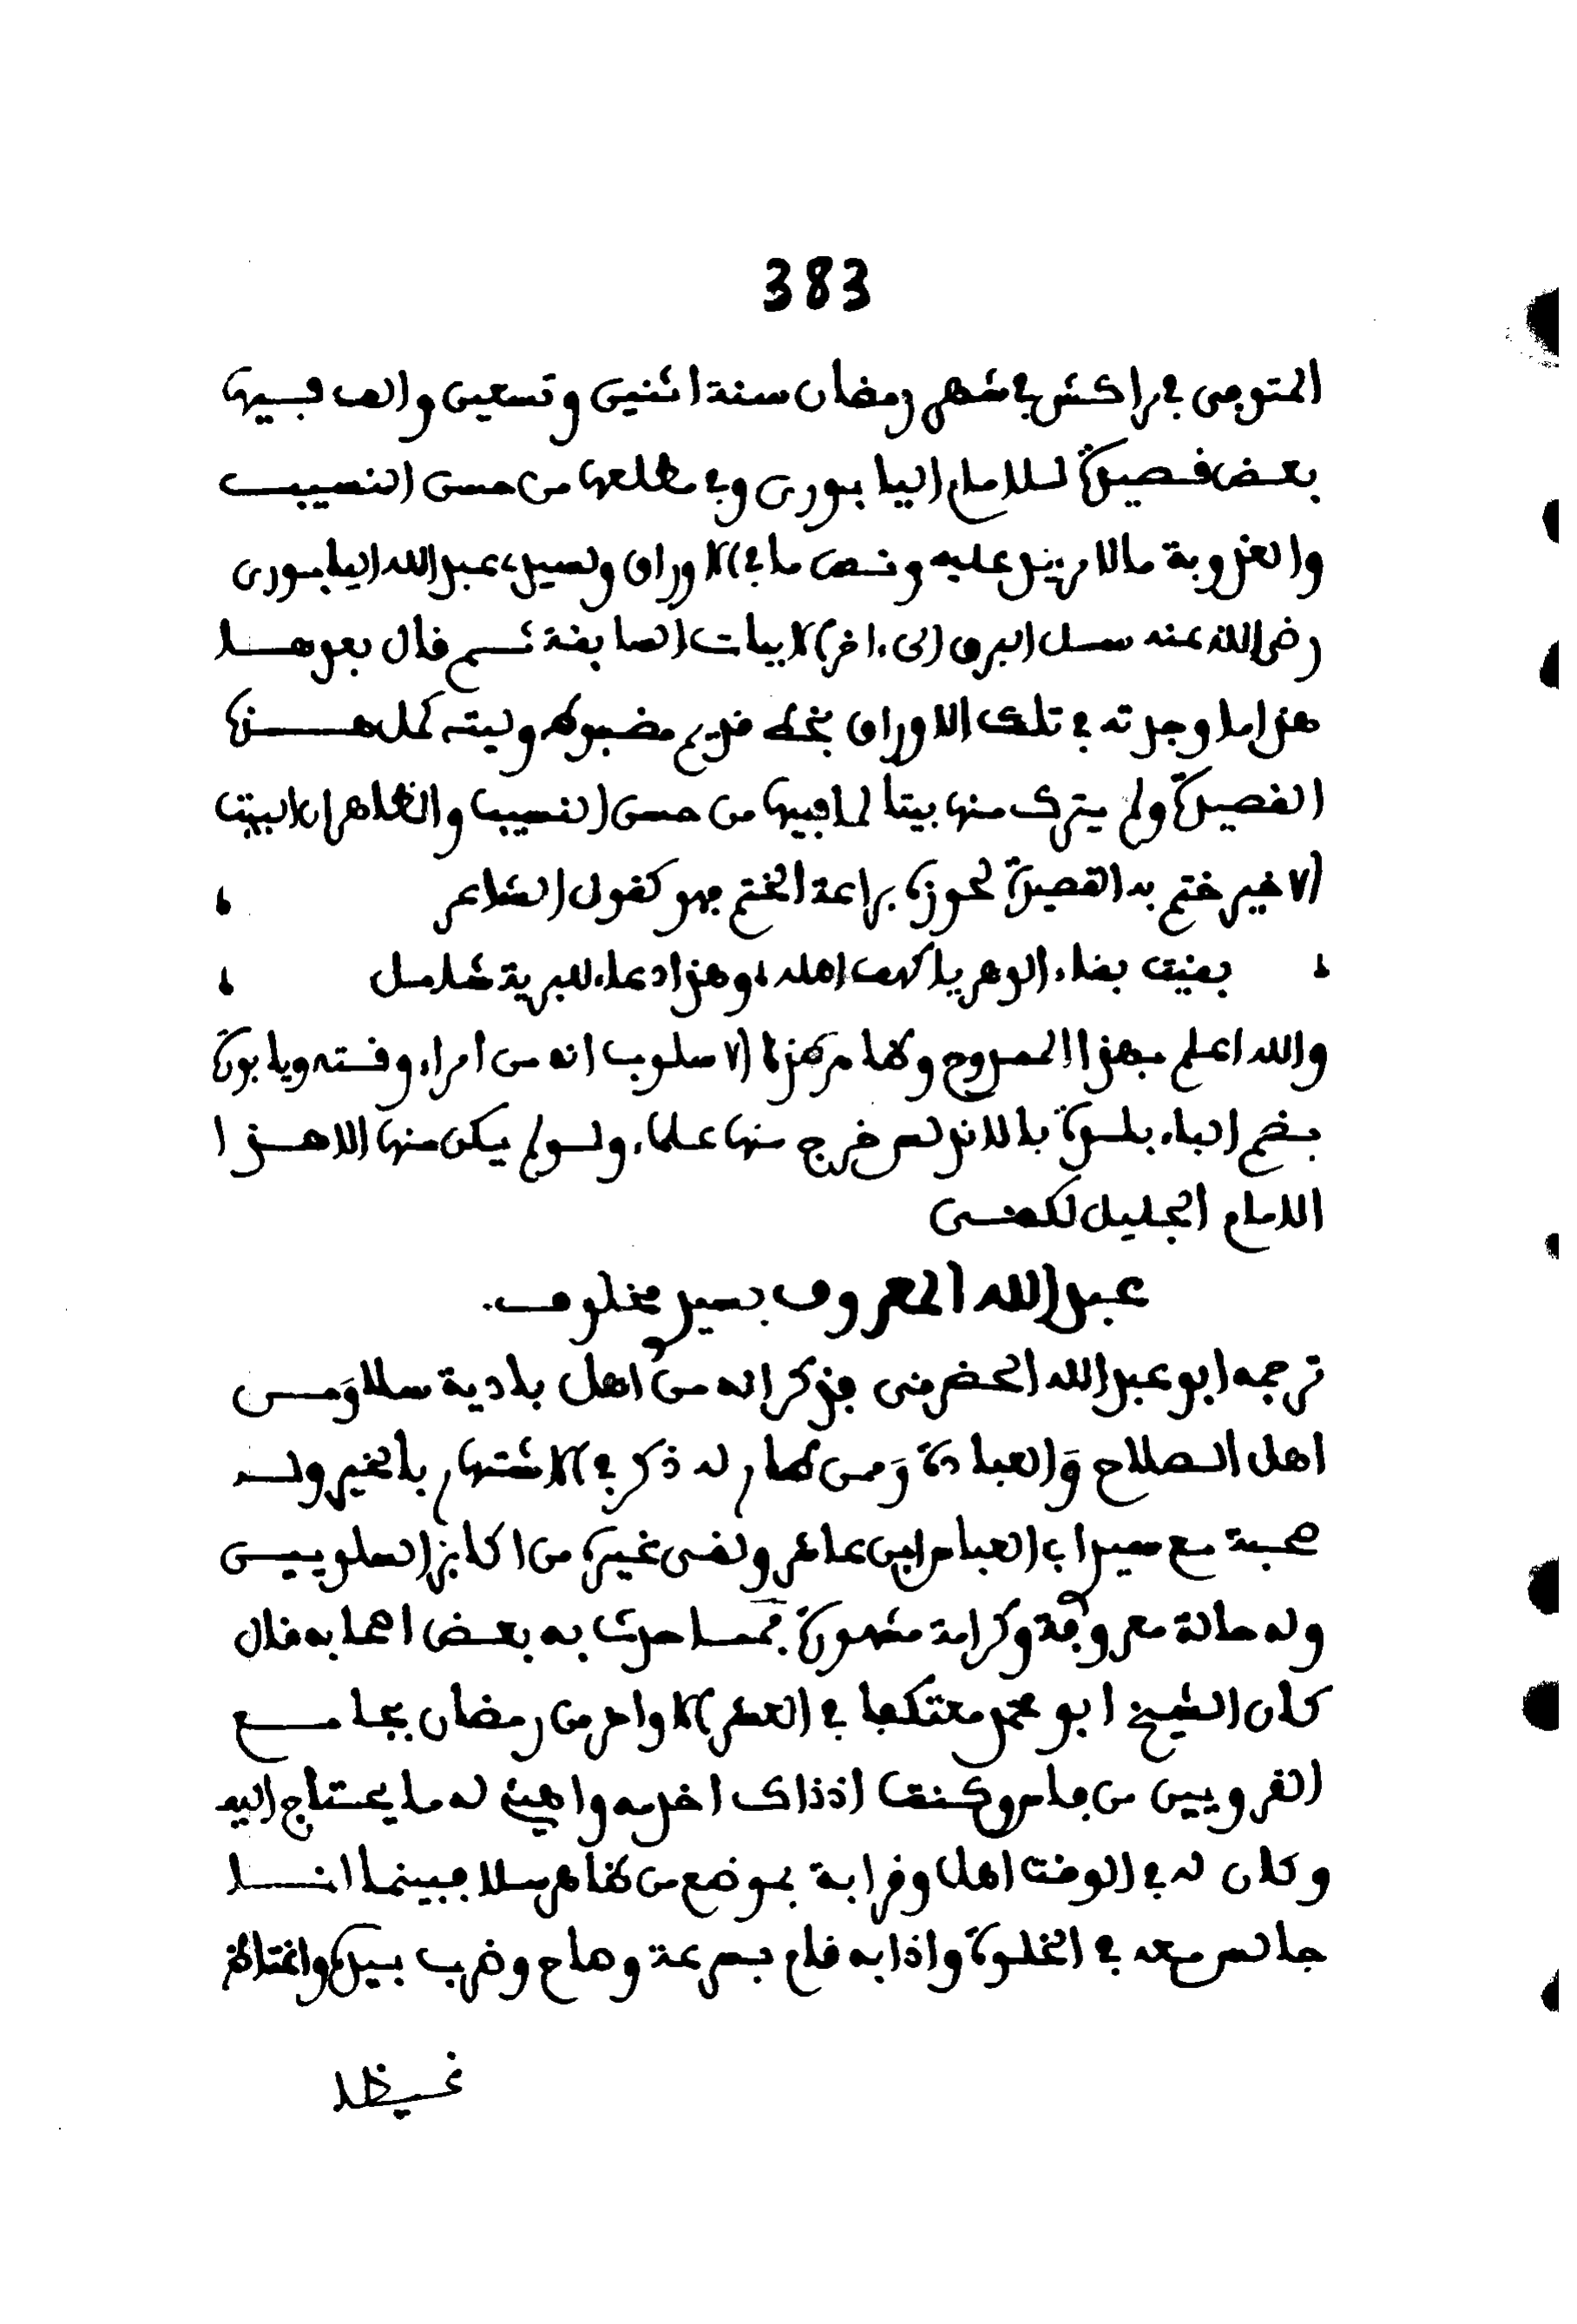 383
المتوفى في مراكش في شهر رمضان سنة اثنين وتسعين والف فيها
بعض قصيدة للامام اليابوري وفي مطلعها من حسن النسيب
والعذوبة مالا مزيد عليه ونص ما في الاوراق ولسيدي عبد الله اليابوري
رضي الله عنه سل البرق الى ءاخر الابيات السابقة ثم قال بعدها
هذا ما وجدته في تلك الاوراق بخط قديم مضبوط وليته كمل هذه
القصيدة ولم يترك منها بيتا لما فيها من حسن النسيب والظاهر ان البيت
الاخير ختم به القصيدة لحوزه براعة الختم فهو كقول الشاعر
بقيت بقاء الدهر يا كهف اهله وهذا دعاء للبرية شامل
والله اعلم بهذا الممدوح ولما مر هذا الاسلوب انه من امراء وقته ويابورة
بضم الباء بلدة بالاندلس خرج منها علماء ولو لم يكن منها الا هذا
الامام الجليل لكفى
عبد الله المعروف بسيدي مخلوف
ترجمه ابو عبد الله الحضرمي فذكر انه من اهل بادية سلا وَمن
اهل الصلاح وَالعبادة وَمن طار له ذكر في الاشتهار بالخير وله
صحبة مع سيدي ابي العباس ابن عاشر ولقي غيره من اكابر السلويين
وله حالة معروفة وكرامة مشهورة مما حدث به بعض اصحابه قال
كان الشيخ ابو محمد معتكفا في العشر الاواخر من رمضان بجامع
القرويين من فاس وكنت اذذاك اخدمه واهيئ له ما يحتاج اليه
وكان له في الوقت اهل وقرابة بموضع من ظاهر سلا فبينما انا
جالس معه في الخلوة واذا به قام بسرعة وصاح وضرب بيده واغتاظ
غيظا